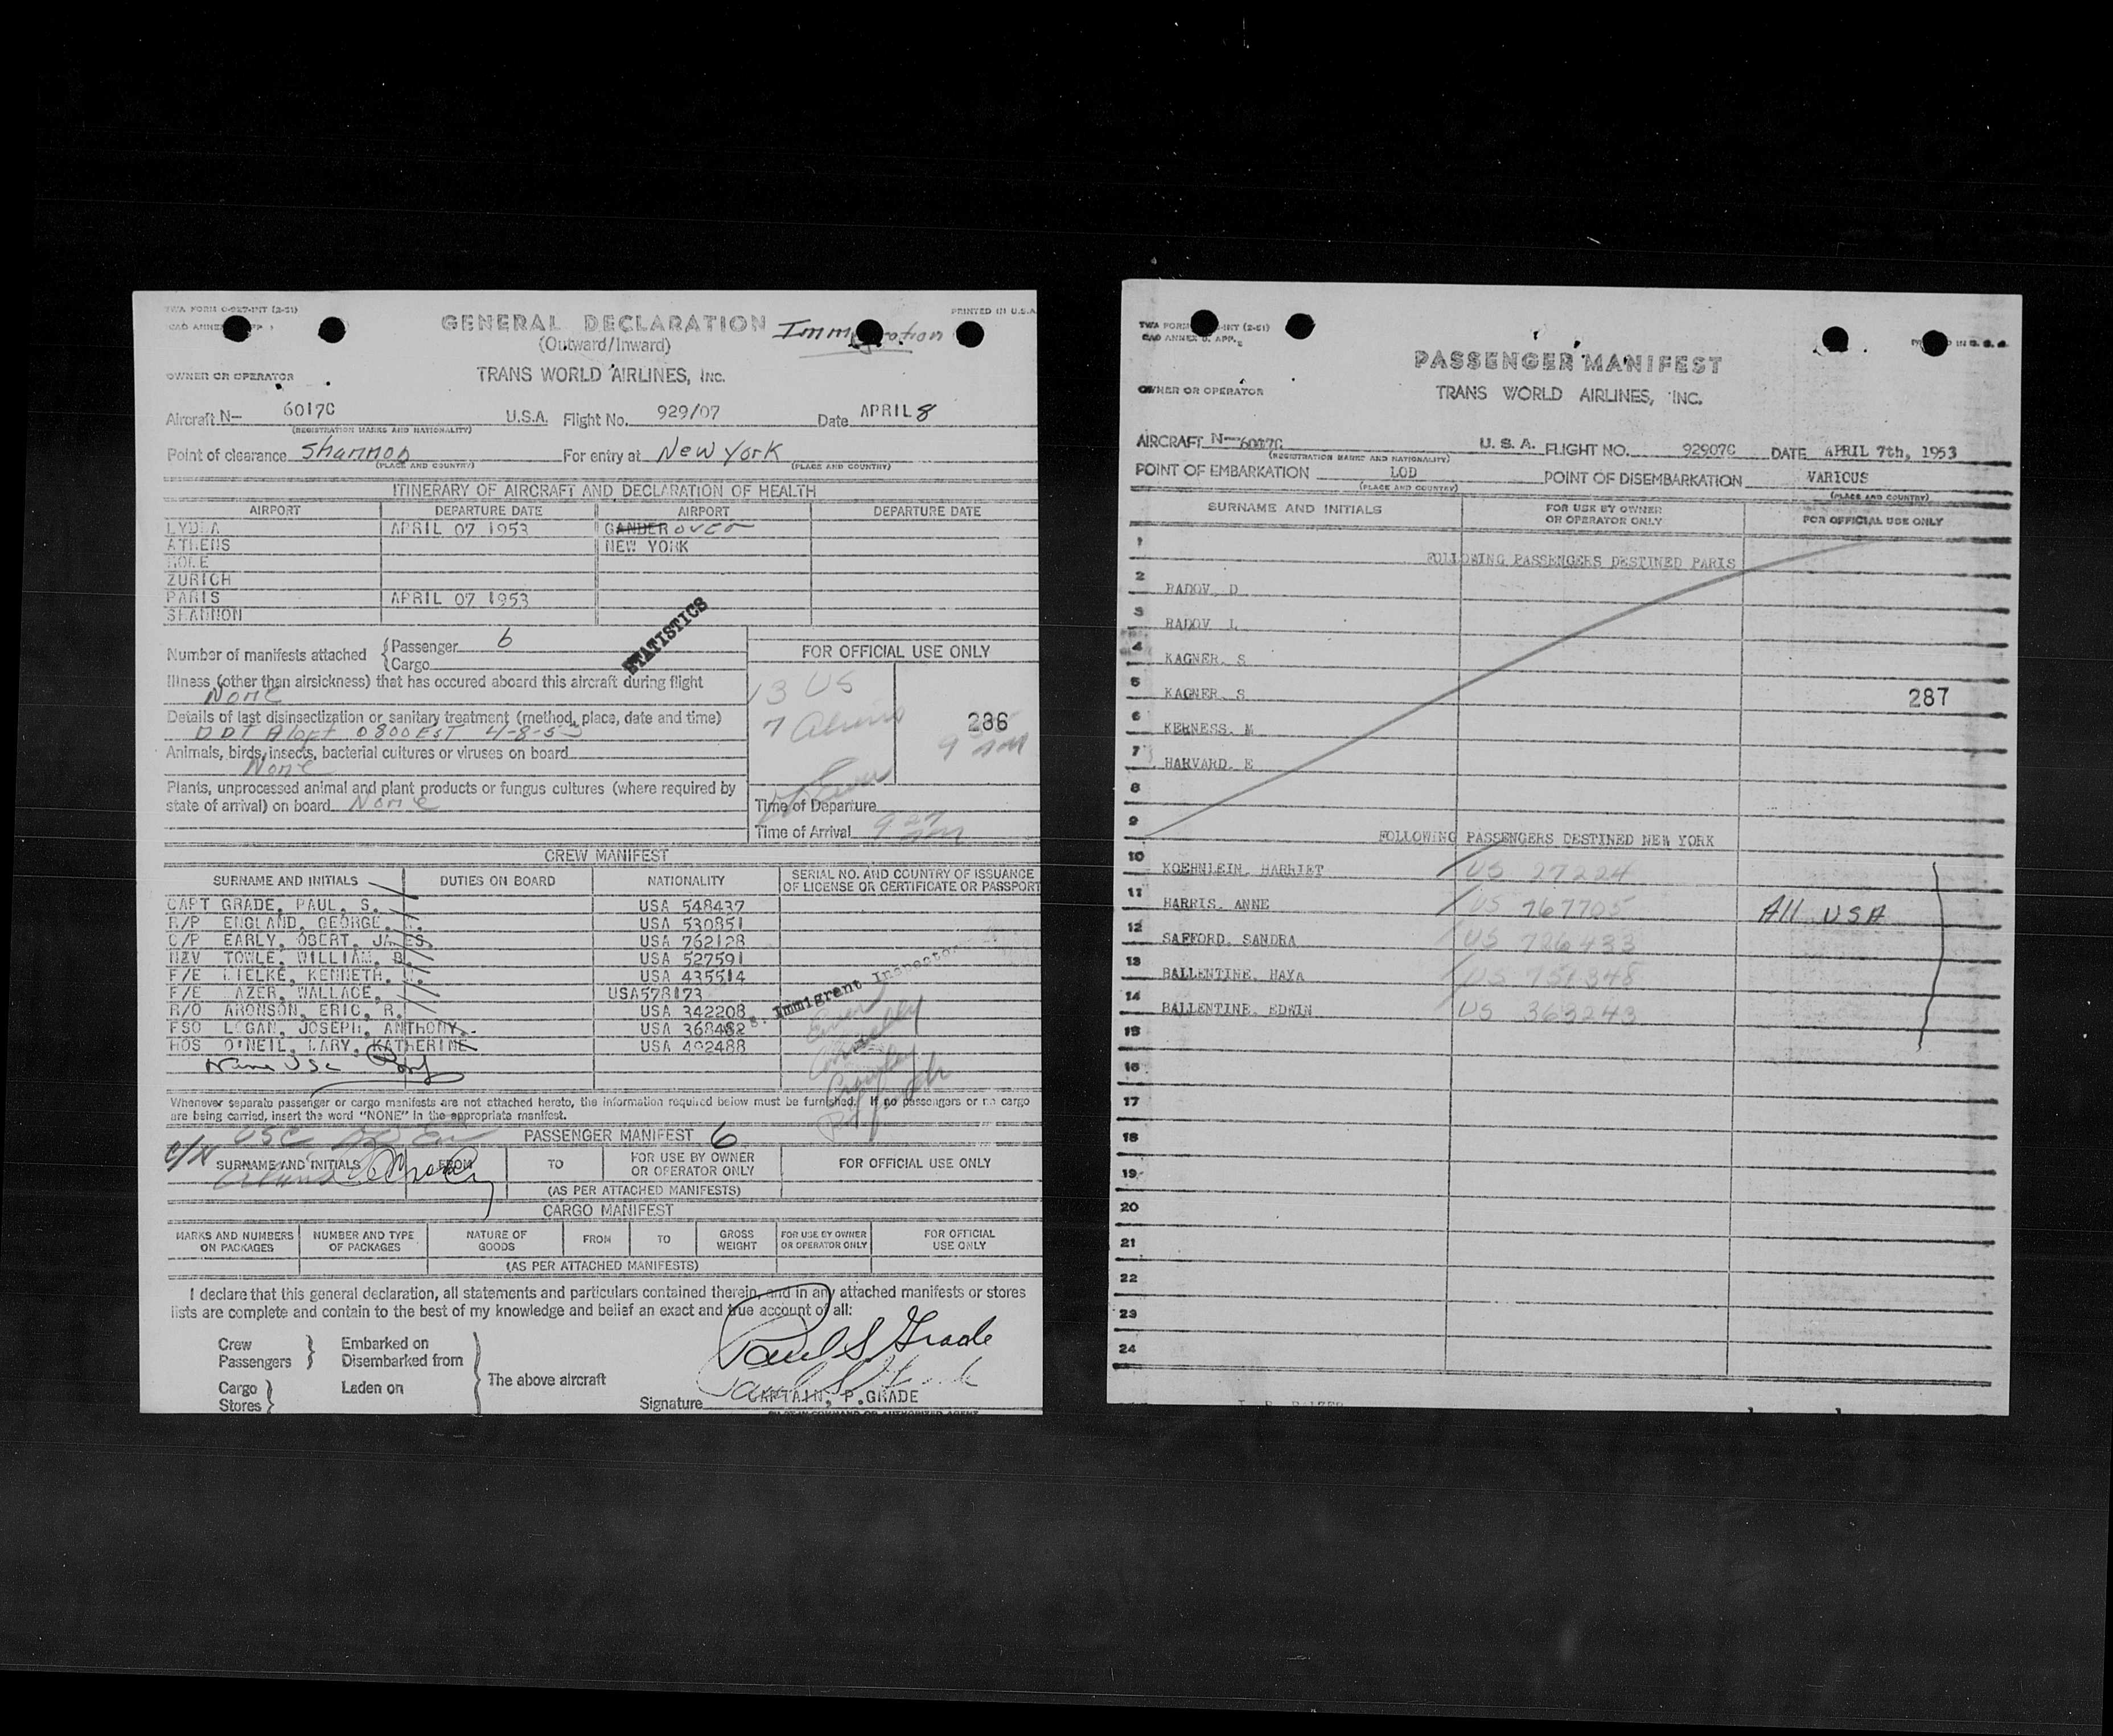 TWA FORM O-827-INT (2-51)
PRINTED IN U.S.A.
GENERAL DECLARATION
Immigration
(Outward/Inward)
OWNER OR OPERATOR
TRANS WORLD AIRLINES, INC.
Aircraft N- 6017C U.S.A. Flight No. 929/07 Date APRIL 8
(REGISTRATION MARKS AND NATIONALITY)
Point of clearance Shannon For entry at New York
(PLACE AND COUNTRY) (PLACE AND COUNTRY)
ITINERARY OF AIRCRAFT AND DECLARATION OF HEALTH
AIRPORT DEPARTURE DATE AIRPORT DEPARTURE DATE
LYDDA APRIL 07 1953 GANDER over
ATHENS NEW YORK
ROME
ZURICH
PARIS APRIL 07 1953
SHANNON
STATISTICS
Number of manifests attached Passenger 6
Cargo
FOR OFFICIAL USE ONLY
Illness (other than airsickness) that has occured aboard this aircraft during flight
None
13 US
7 Aliens
286
Details of last disinsectization or sanitary treatment (method, place, date and time)
DDT Aloft 0800 EST 4-8-53
Animals, birds, insects, bacterial cultures or viruses on board
None
Plants, unprocessed animal and plant products or fungus cultures (where required by
state of arrival) on board None
Time of Departure
Time of Arrival 9 27 AM
CREW MANIFEST
SURNAME AND INITIALS DUTIES ON BOARD NATIONALITY SERIAL NO. AND COUNTRY OF ISSUANCE
OF LICENSE OR CERTIFICATE OR PASSPORT
CAPT GRADE, PAUL, S. USA 548437
R/P ENGLAND, GEORGE USA 530851
C/P EARLY, OBERT, JAMES, USA 762128
NAV TOWLE, WILLIAM, B. USA 527591
F/E MIELKE, KENNETH, USA 435514
F/E AZER, WALLACE, USA578173
R/O ARONSON, ERIC, R. USA 342208
FSO LOGAN, JOSEPH, ANTHONY. USA 368482
HOS O'NEIL, MARY, KATHERINE USA 402488
Immigrant Inspector
Whenever separate passenger or cargo manifests are not attached hereto, the information required below must be furnished. If no passengers or no cargo
are being carried, insert the word "NONE" in the appropriate manifest.
PASSENGER MANIFEST 6
SURNAME AND INITIALS FROM TO FOR USE BY OWNER
OR OPERATOR ONLY FOR OFFICIAL USE ONLY
(AS PER ATTACHED MANIFESTS)
CARGO MANIFEST
MARKS AND NUMBERS
ON PACKAGES NUMBER AND TYPE
OF PACKAGES NATURE OF
GOODS FROM TO GROSS
WEIGHT FOR USE BY OWNER
OR OPERATOR ONLY FOR OFFICIAL
USE ONLY
(AS PER ATTACHED MANIFESTS)
I declare that this general declaration, all statements and particulars contained therein, and in any attached manifests or stores
lists are complete and contain to the best of my knowledge and belief an exact and true account of all:
Crew Embarked on
Passengers Disembarked from
The above aircraft
Cargo Laden on
Stores
Paul S Grade
Signature CAPTAIN, P. GRADE
PILOT IN COMMAND OR AUTHORIZED AGENT
PASSENGER MANIFEST
OWNER OR OPERATOR
TRANS WORLD AIRLINES, INC.
AIRCRAFT N-6017C U. S. A. FLIGHT NO. 92907C DATE APRIL 7th, 1953
(REGISTRATION MARKS AND NATIONALITY)
POINT OF EMBARKATION LOD POINT OF DISEMBARKATION VARIOUS
(PLACE AND COUNTRY) (PLACE AND COUNTRY)
SURNAME AND INITIALS FOR USE BY OWNER
OR OPERATOR ONLY FOR OFFICIAL USE ONLY
1
FOLLOWING PASSENGERS DESTINED PARIS
2 RADOV, D
3 RADOV L
4 KAGNER, S
5 KAGNER, S 287
6 KERNESS, M
7 HARVARD, E
8
9
FOLLOWING PASSENGERS DESTINED NEW YORK
10 KOEHNLEIN, HARRIET US 27224
11 HARRIS, ANNE US 767705 All USA
12 SAFFORD, SANDRA US 786433
13 BALLENTINE, HAYA US 751348
14 BALLENTINE, EDWIN US 363243
15
16
17
18
19
20
21
22
23
24